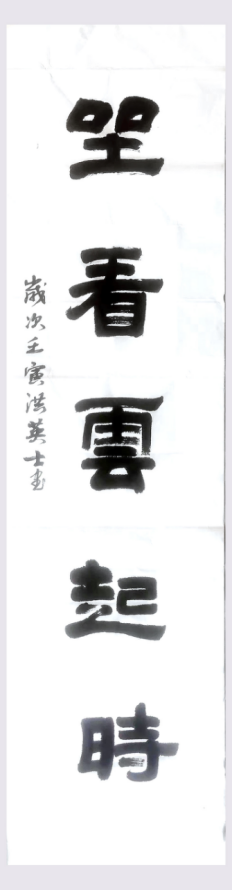 坐看雲起時
歲次壬寅洪英士書